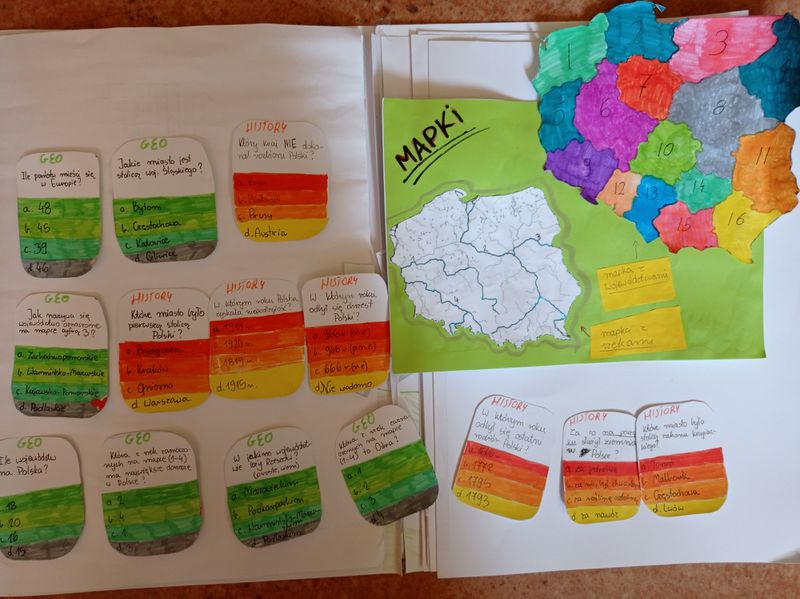 GEO
Ile państw mieści się
w Europie?
a. 48
b. 45
c. 39
d. 46
GEO
Jakie miasto jest
stolicą woj. Śląskiego?
a. Bytom
b. Częstochowa
c. Katowice
d. Gliwice
HISTORY
Który kraj NIE doko-
nał rozbioru Polski?
a. Rosja
c. Prusy
d. Austria
GEO
Jak nazywa się
województwo oznaczone
na mapie cyfrą 3?
a. Zachodniopomorskie
b. Warmińsko-Mazurskie
c. Kujawsko-Pomorskie
d. Podlaskie
HISTORY
Które miasto było
pierwszą stolicą
Polski?
a. Bydgoszcz
b. Kraków
c. Gniezno
d. Warszawa
HISTORY
W którym roku Polska
zyskała niepodległość?
a. 1918r.
b. 1920r.
c. 1819r.
d. 1915r.
HISTORY
W którym roku
odbył się chrzest
Polski?
a. 966r. (n.e)
b. 966r. (p.n.e)
c. 666r. (n.e)
d. Nie wiadomo
Ile województw
ma Polska?
18
b. 20
c. 16
d. 15
GEO
Która z rzek zaznaczo-
nych na mapie (1-4)
ma największe dorzecze
w Polsce?
a. 2
b. 4
c. 1
d. 3
GEO
W jakim województ-
wie leży Rzeszów?
a. Mazowieckim
b. Podkarpackim
c. Warmińsko-Mazur.
d. Podlaskim
GEO
Która z rzek zazna-
czonych na mapie
(1-4) to Odra?
a. 1
b. 2
c. 3
d. 4
HISTORY
W którym roku
odbył się ostatni
rozbiór Polski?
b. 1772
c. 1795
d. 1793
HISTORY
Za co
w Polsce?
d. za nawóz
HISTORY
Które miasto było
stolicą zakonu krzyżac-
kiego?
a. Toruń
b. Malbork
c. Częstochowa
d. Lwów
MAPKI
1
2
3
4
mapka z
województwami
mapka z
rzekami
1
2
3
4
5
6
7
8
9
10
11
12
13
14
15
16